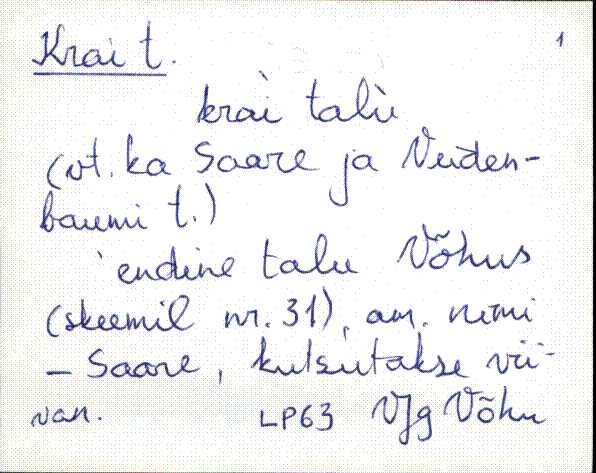 Krai t. 1
krài talù
(vt. ka Saare ja Veiden-
baumi t.)
`endine talu Võhus
(skeemil nr. 31), am. nimi
– Saare, kutsutakse vii-
van. LP63 VJg Võhu